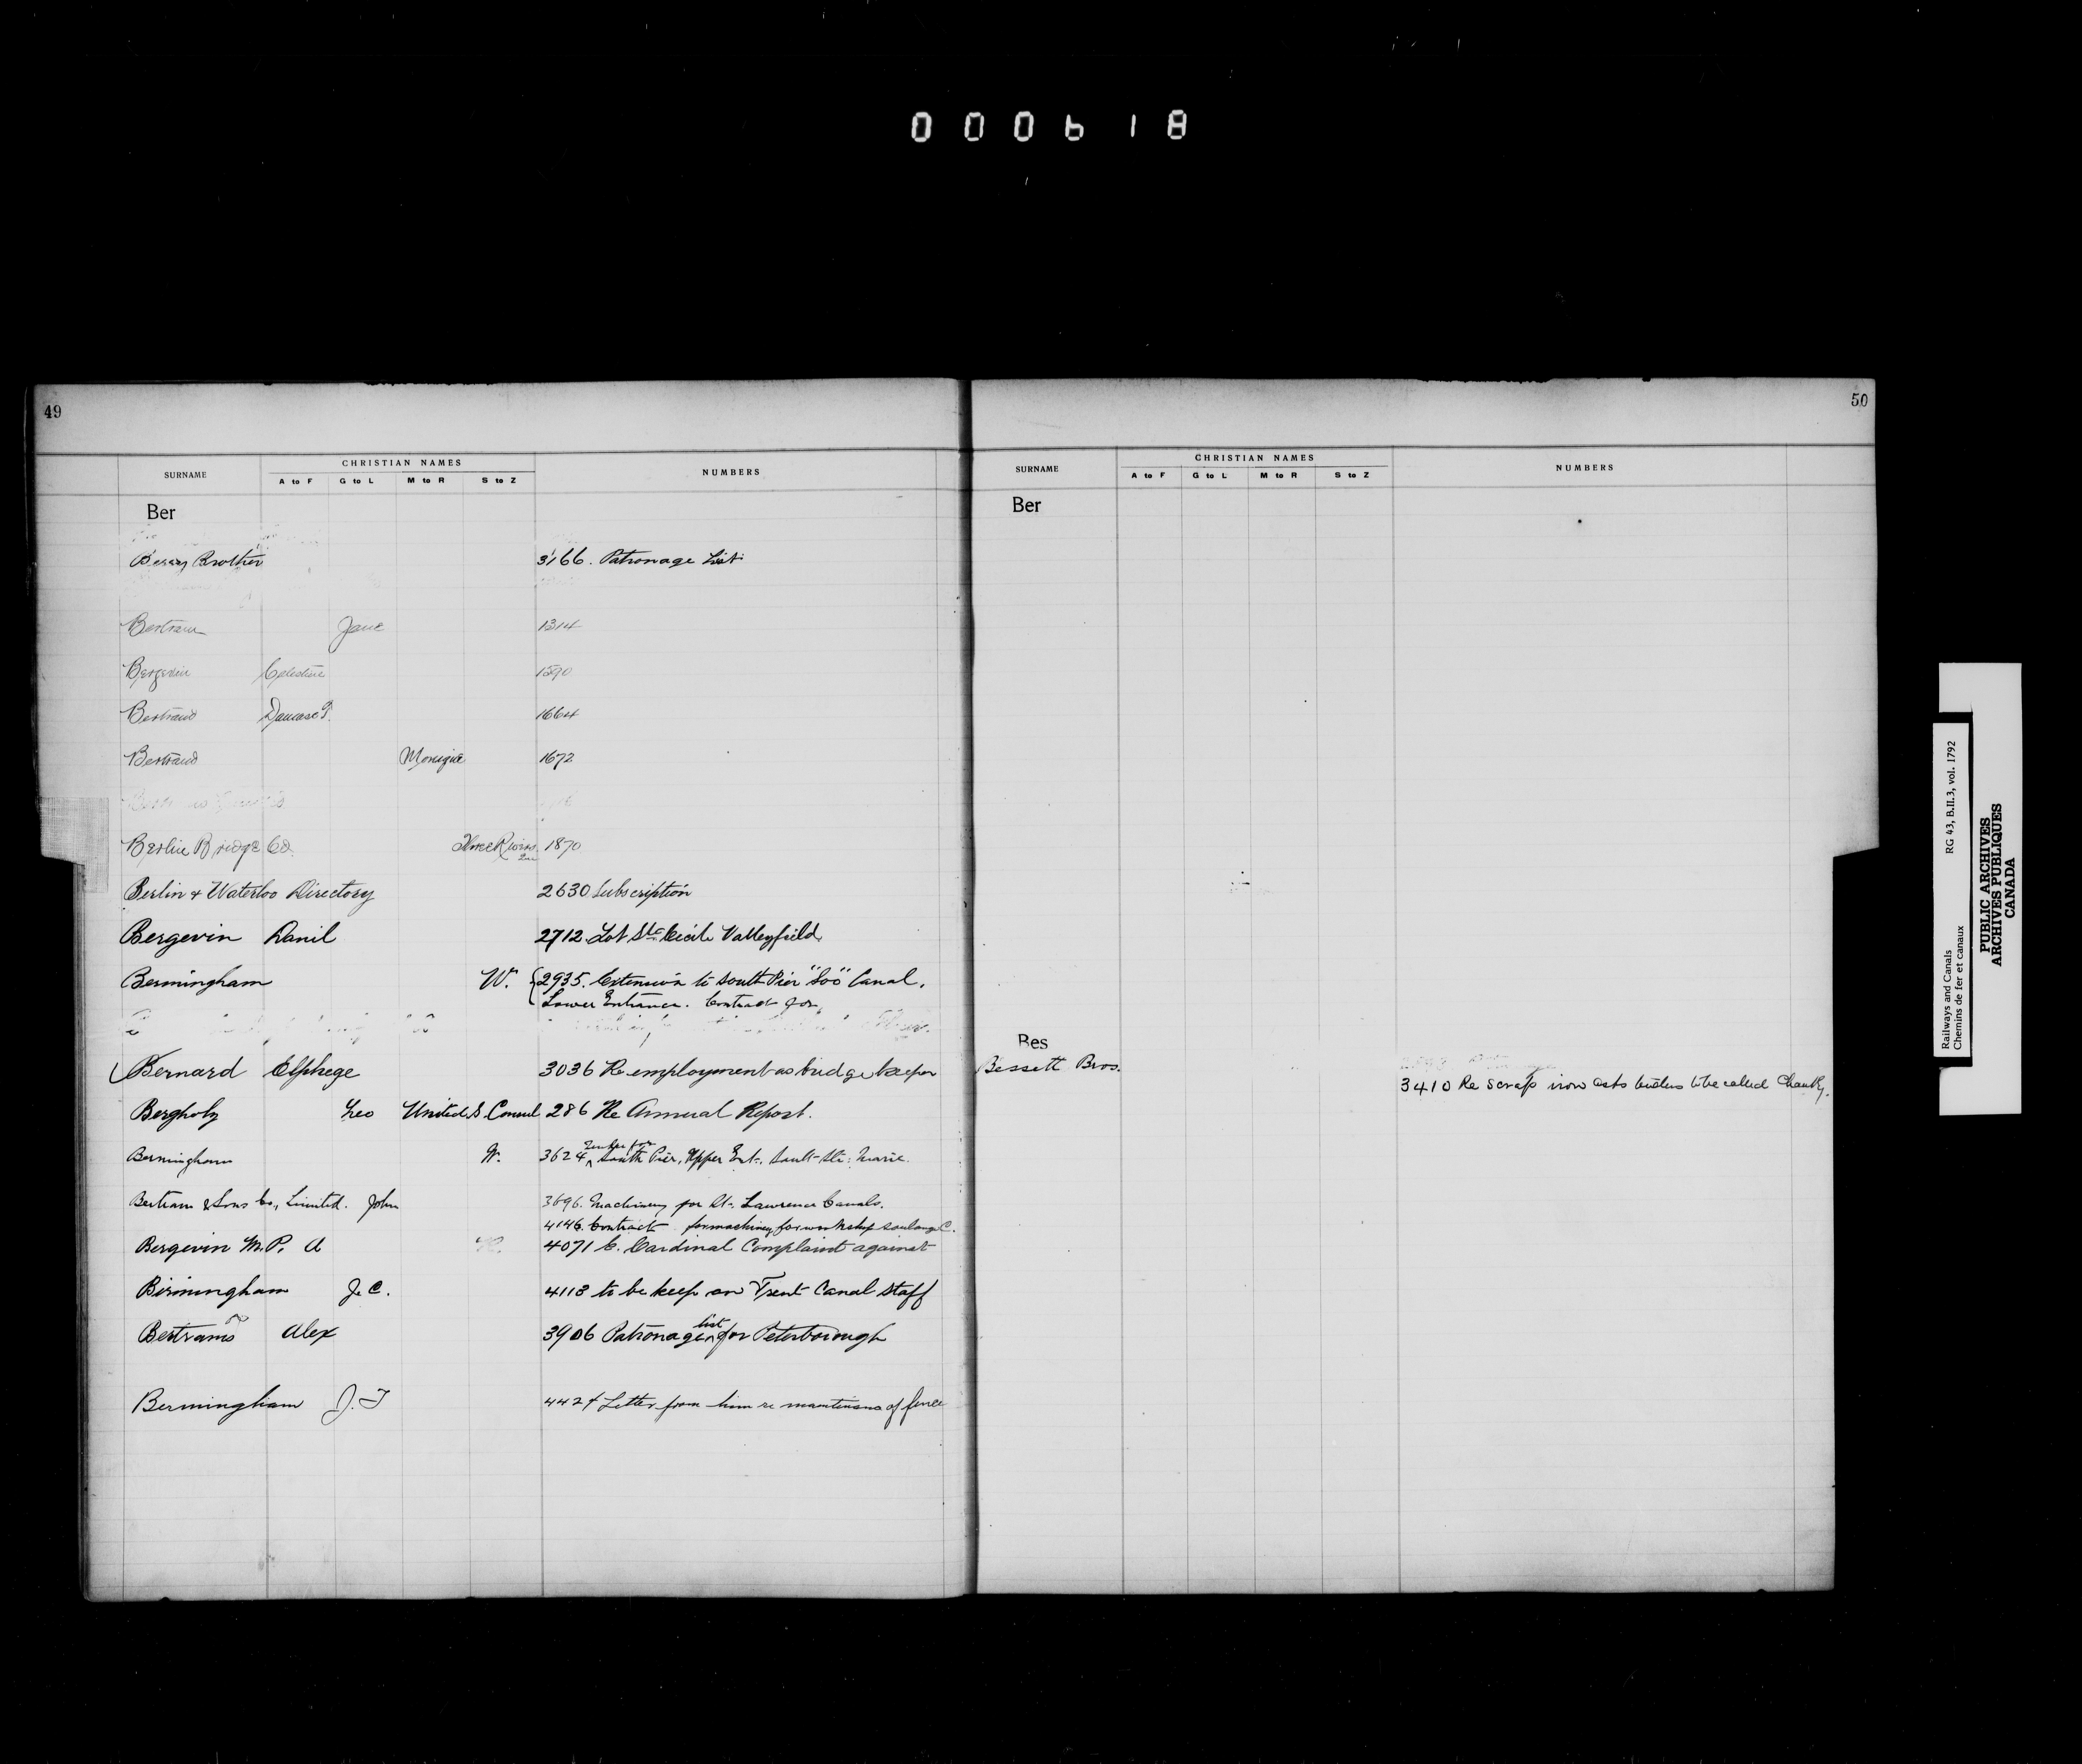 000618
49
SURNAME CHRISTIAN NAMES NUMBERS
A to F G to L M to R S to Z
Ber
Berry Brother 3166. Patronage List
Bertram Jane 1314
Bergevin Celestine 1590
Bertrand Damase 1664
Bertrand Monique 1672
Berlin Bridge Co. Three Rivers Que 1870
Berlin & Waterloo Directory 2630 Subscription
Bergevin Danil 2712. Lot Ste Cécile Valleyfield.
Bermingham W. 2935. Extension to South Pier "Soo" Canal.
Lower Entrance. Contract for.
Bernard Elphege 3036 Re employment as bridge keeper
Bergholz Geo United S. Consul 286 Re Annual Report.
Bermingham W. 3624 Tender for South Pier, Upper Ent., Sault Ste. Marie.
Bertram & Sons Co., Limited. John 3696. Machinery for St. Lawrence Canals.
4146. Contract for machiney for workshop Soulange C.
Bergevin M.P. A 4071 C. Cardinal Complaint against
Birmingham J. C. 4113 to be keep on Trent Canal Staff
Bertrams Alex 3906 Patronage list for Peterborough
Bermingham J. T 442 Letter from him re maintenance of fence
50
SURNAME CHRISTIAN NAMES NUMBERS
A to F G to L M to R S to Z
Ber
Bes
Bessett Bros. 3410 Re scrap iron tenders to be called Chambly.
RG 43, B.II.3, vol. 1792
Railways and Canals
Chemins de fer et canaux
PUBLIC ARCHIVES
ARCHIVES PUBLIQUES
CANADA